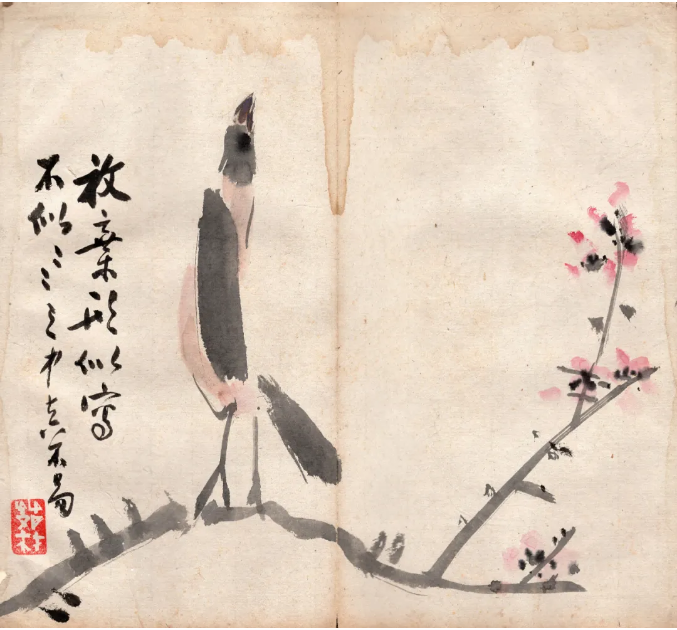 放棄形似寫
不似之中真不易